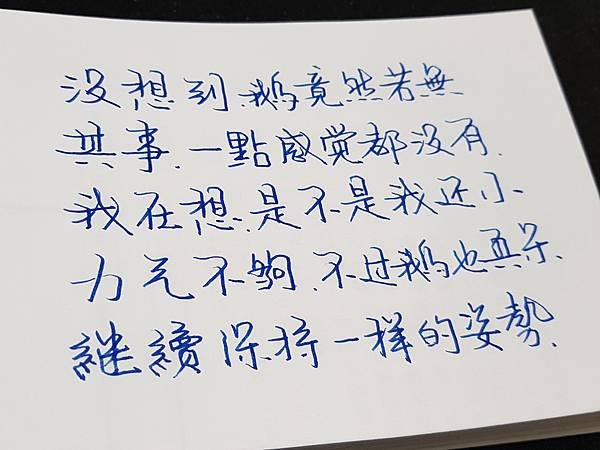 没想到,鹅竟然若無
其事、一點感觉都没有、
我在想,是不是我还小、
力气不夠、不过鹅也真呆、
継續保持一样的姿勢、